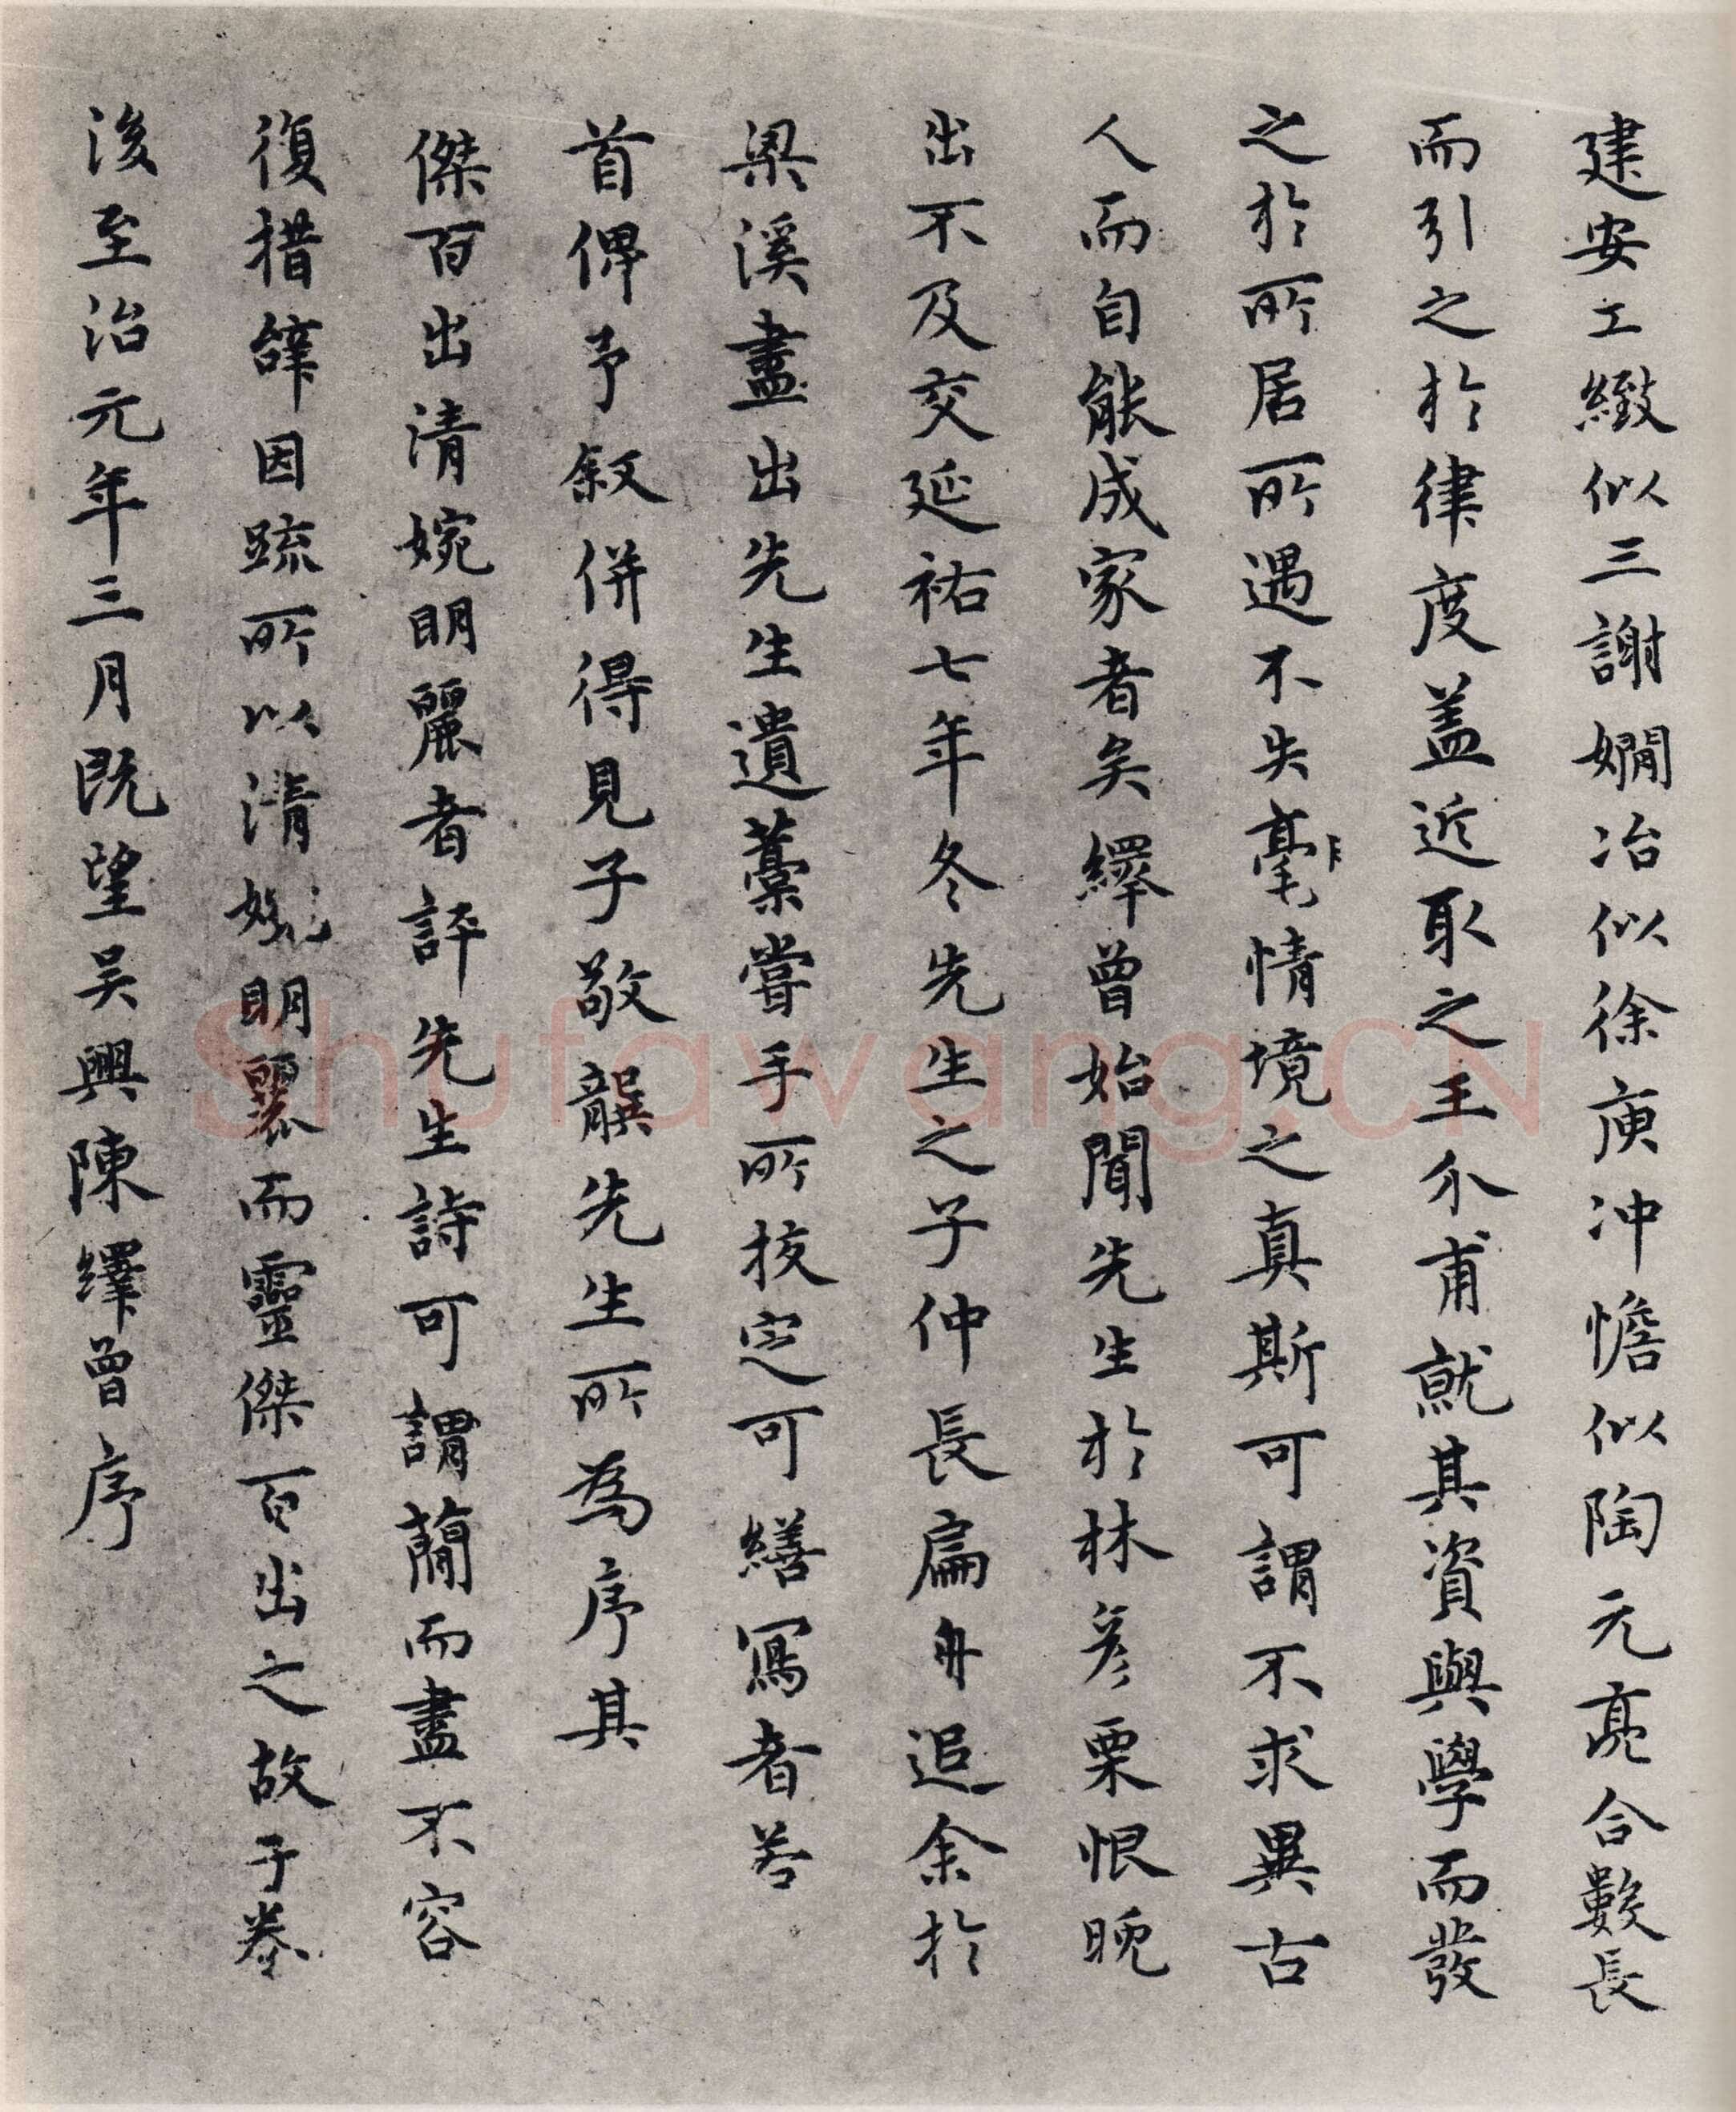 建安工緻似三謝嫺冶似徐庾沖憺似陶元亮合數長
而引之於律度盖近取之王介甫就其資與學而發
之於所居所遇不失毫情境之真斯可謂不求異古
人而自能成家者矣繹曾始聞先生於林彦栗恨晚
出不及交延祐七年冬先生之子仲長扁舟追余於
梁溪盡出先生遺藁嘗手所校定可繕寫者若
首俾予叙併得見子敬龔先生所為序其
傑百出清婉明麗者評先生詩可謂蕳而盡不容
復措辭因疏所以清婉明麗而靈傑百出之故于卷
後至治元年三月既望吴興陳繹曾序
Shufawang.CN